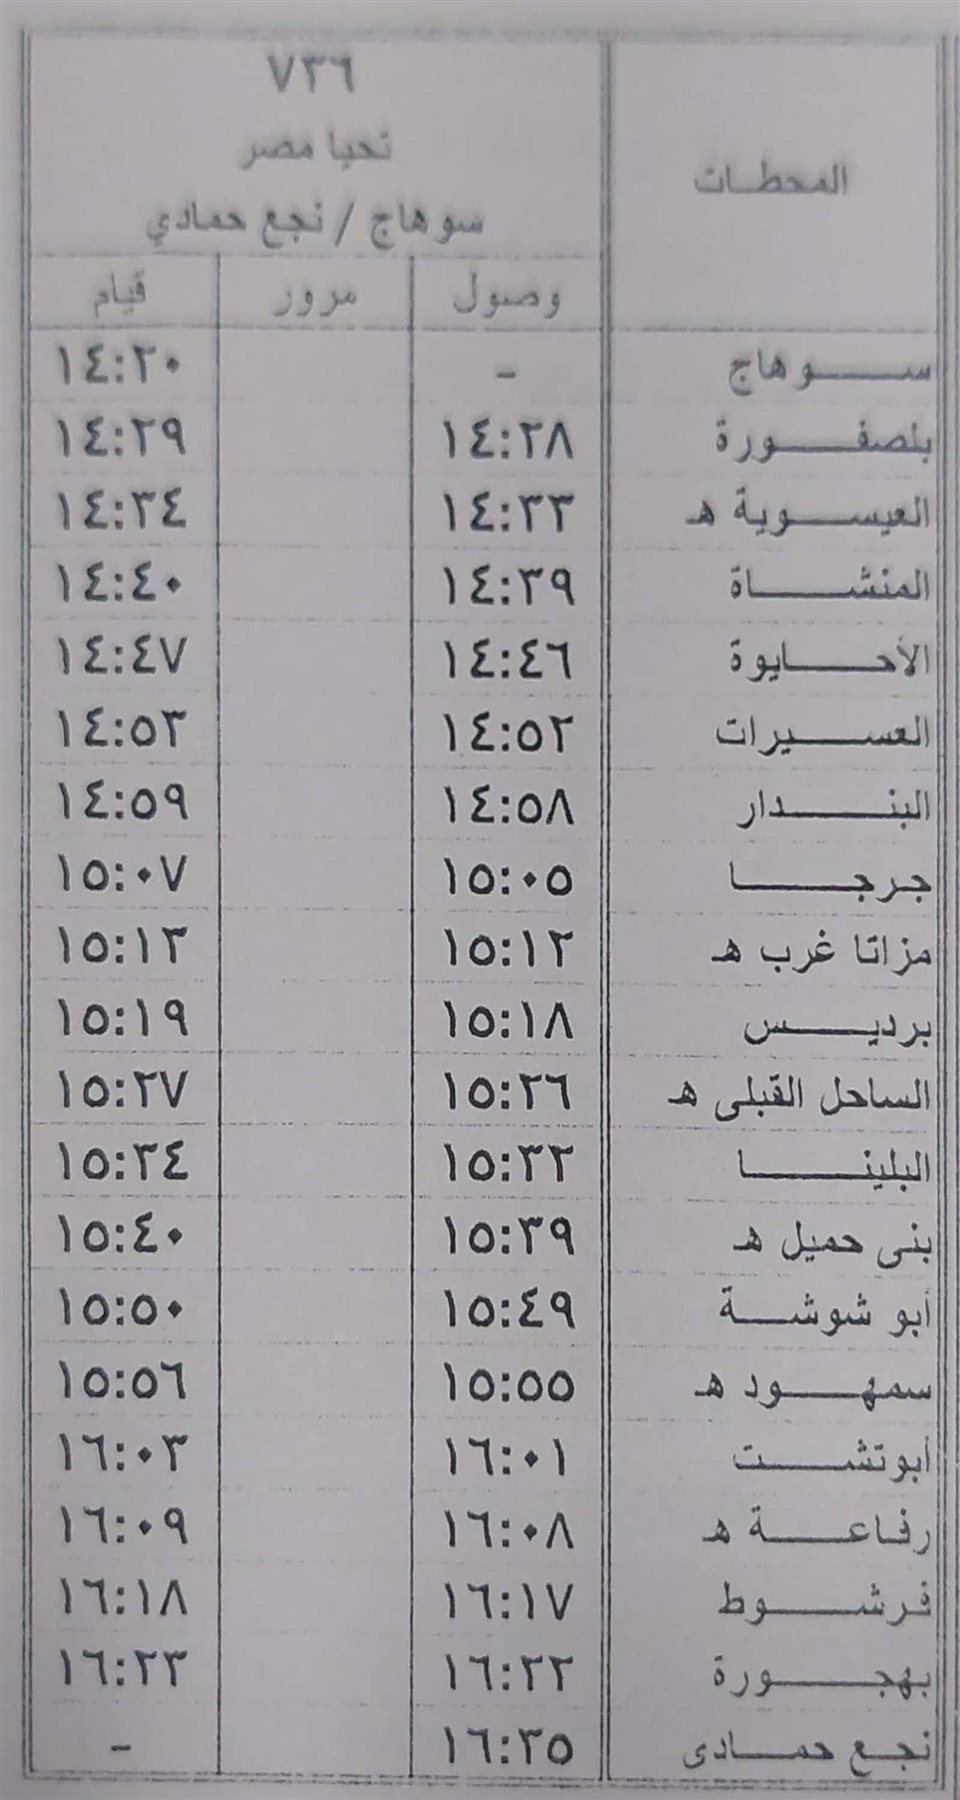 المحطات
٧٣٦
تحيا مصر
سوهاج / نجع حمادي
وصول مرور قيام
سوهاج - ١٤:٢٠
بلصفورة ١٤:٢٨ ١٤:٢٩
العيسوية هـ ١٤:٣٣ ١٤:٣٤
المنشاة ١٤:٣٩ ١٤:٤٠
الأحايوة ١٤:٤٦ ١٤:٤٧
العسيرات ١٤:٥٢ ١٤:٥٣
البندار ١٤:٥٨ ١٤:٥٩
جرجا ١٥:٠٥ ١٥:٠٧
مزاتا غرب هـ ١٥:١٢ ١٥:١٣
برديس ١٥:١٨ ١٥:١٩
الساحل القبلى هـ ١٥:٢٦ ١٥:٢٧
البلينا ١٥:٣٢ ١٥:٣٤
بنى حميل هـ ١٥:٣٩ ١٥:٤٠
أبو شوشة ١٥:٤٩ ١٥:٥٠
سمهود هـ ١٥:٥٥ ١٥:٥٦
أبوتشت ١٦:٠١ ١٦:٠٣
رفاعة هـ ١٦:٠٨ ١٦:٠٩
فرشوط ١٦:١٧ ١٦:١٨
بهجورة ١٦:٢٢ ١٦:٢٣
نجع حمادى ١٦:٣٥ -